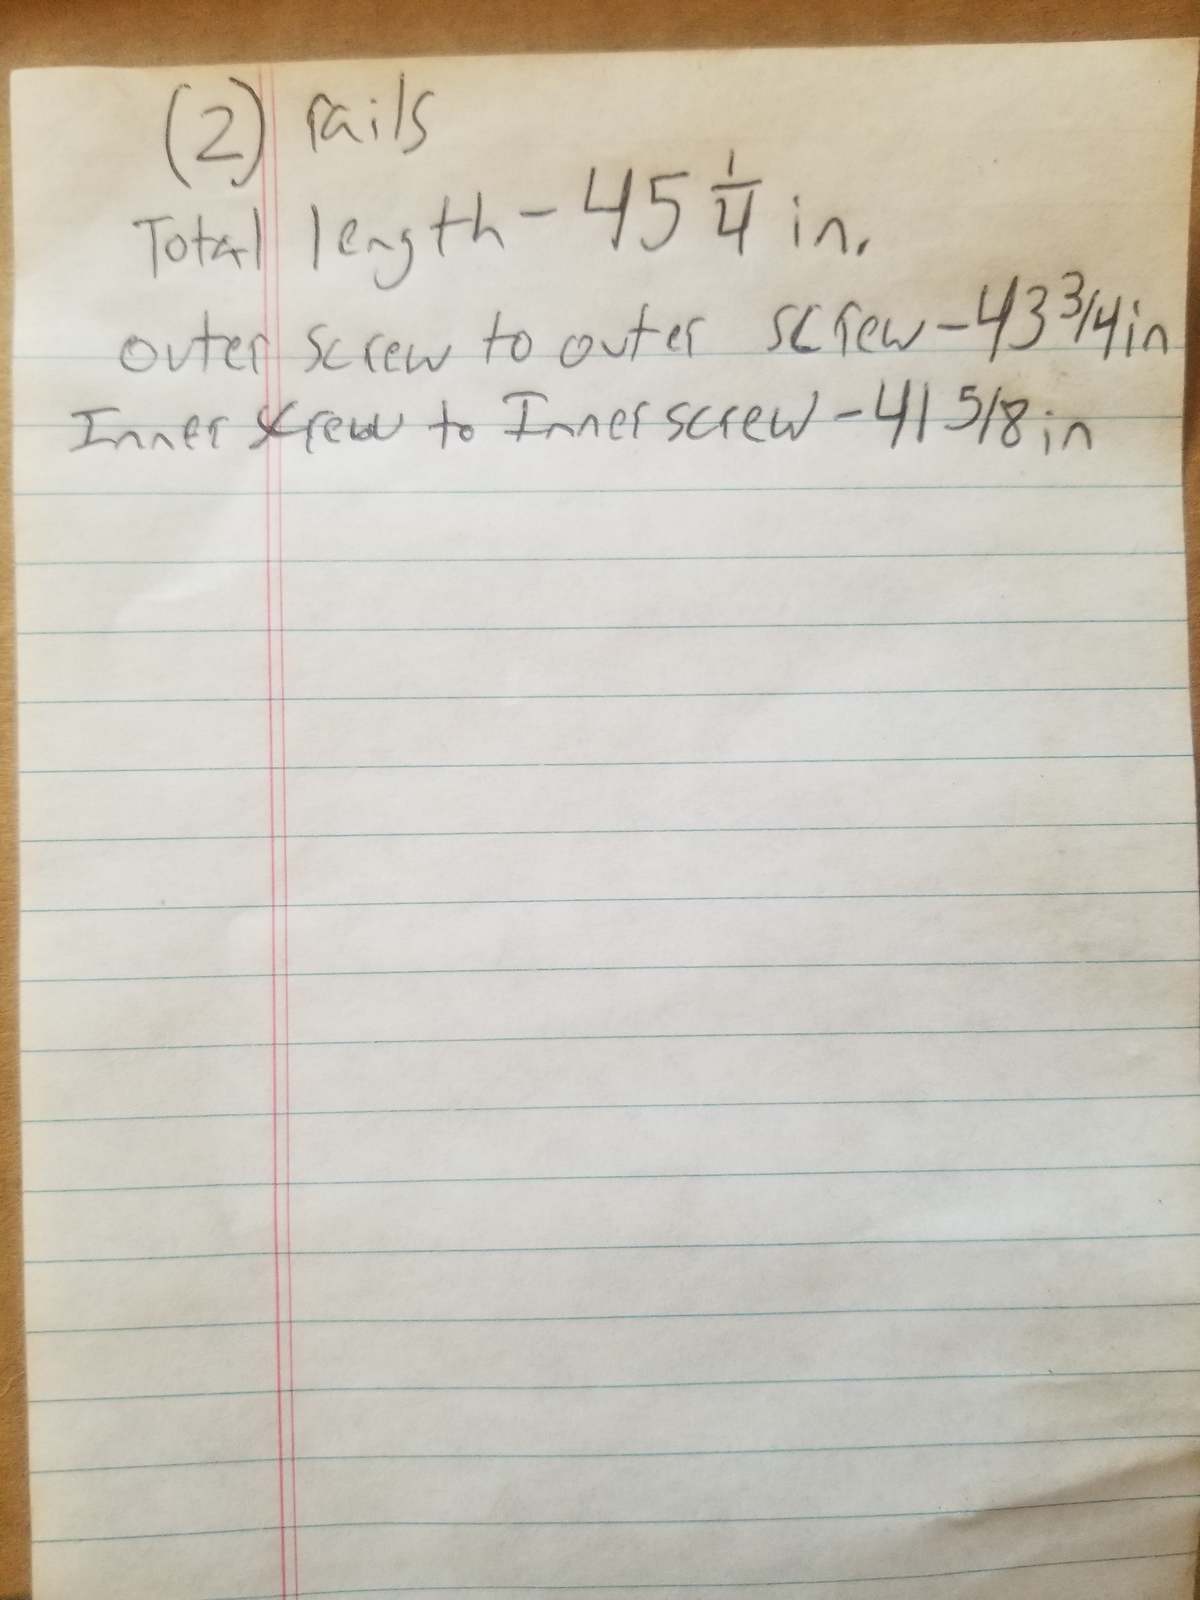 (2) rails
Total length - 45 1/4 in.
outer screw to outer screw - 43 3/4 in
Inner screw to Inner screw - 41 5/8 in